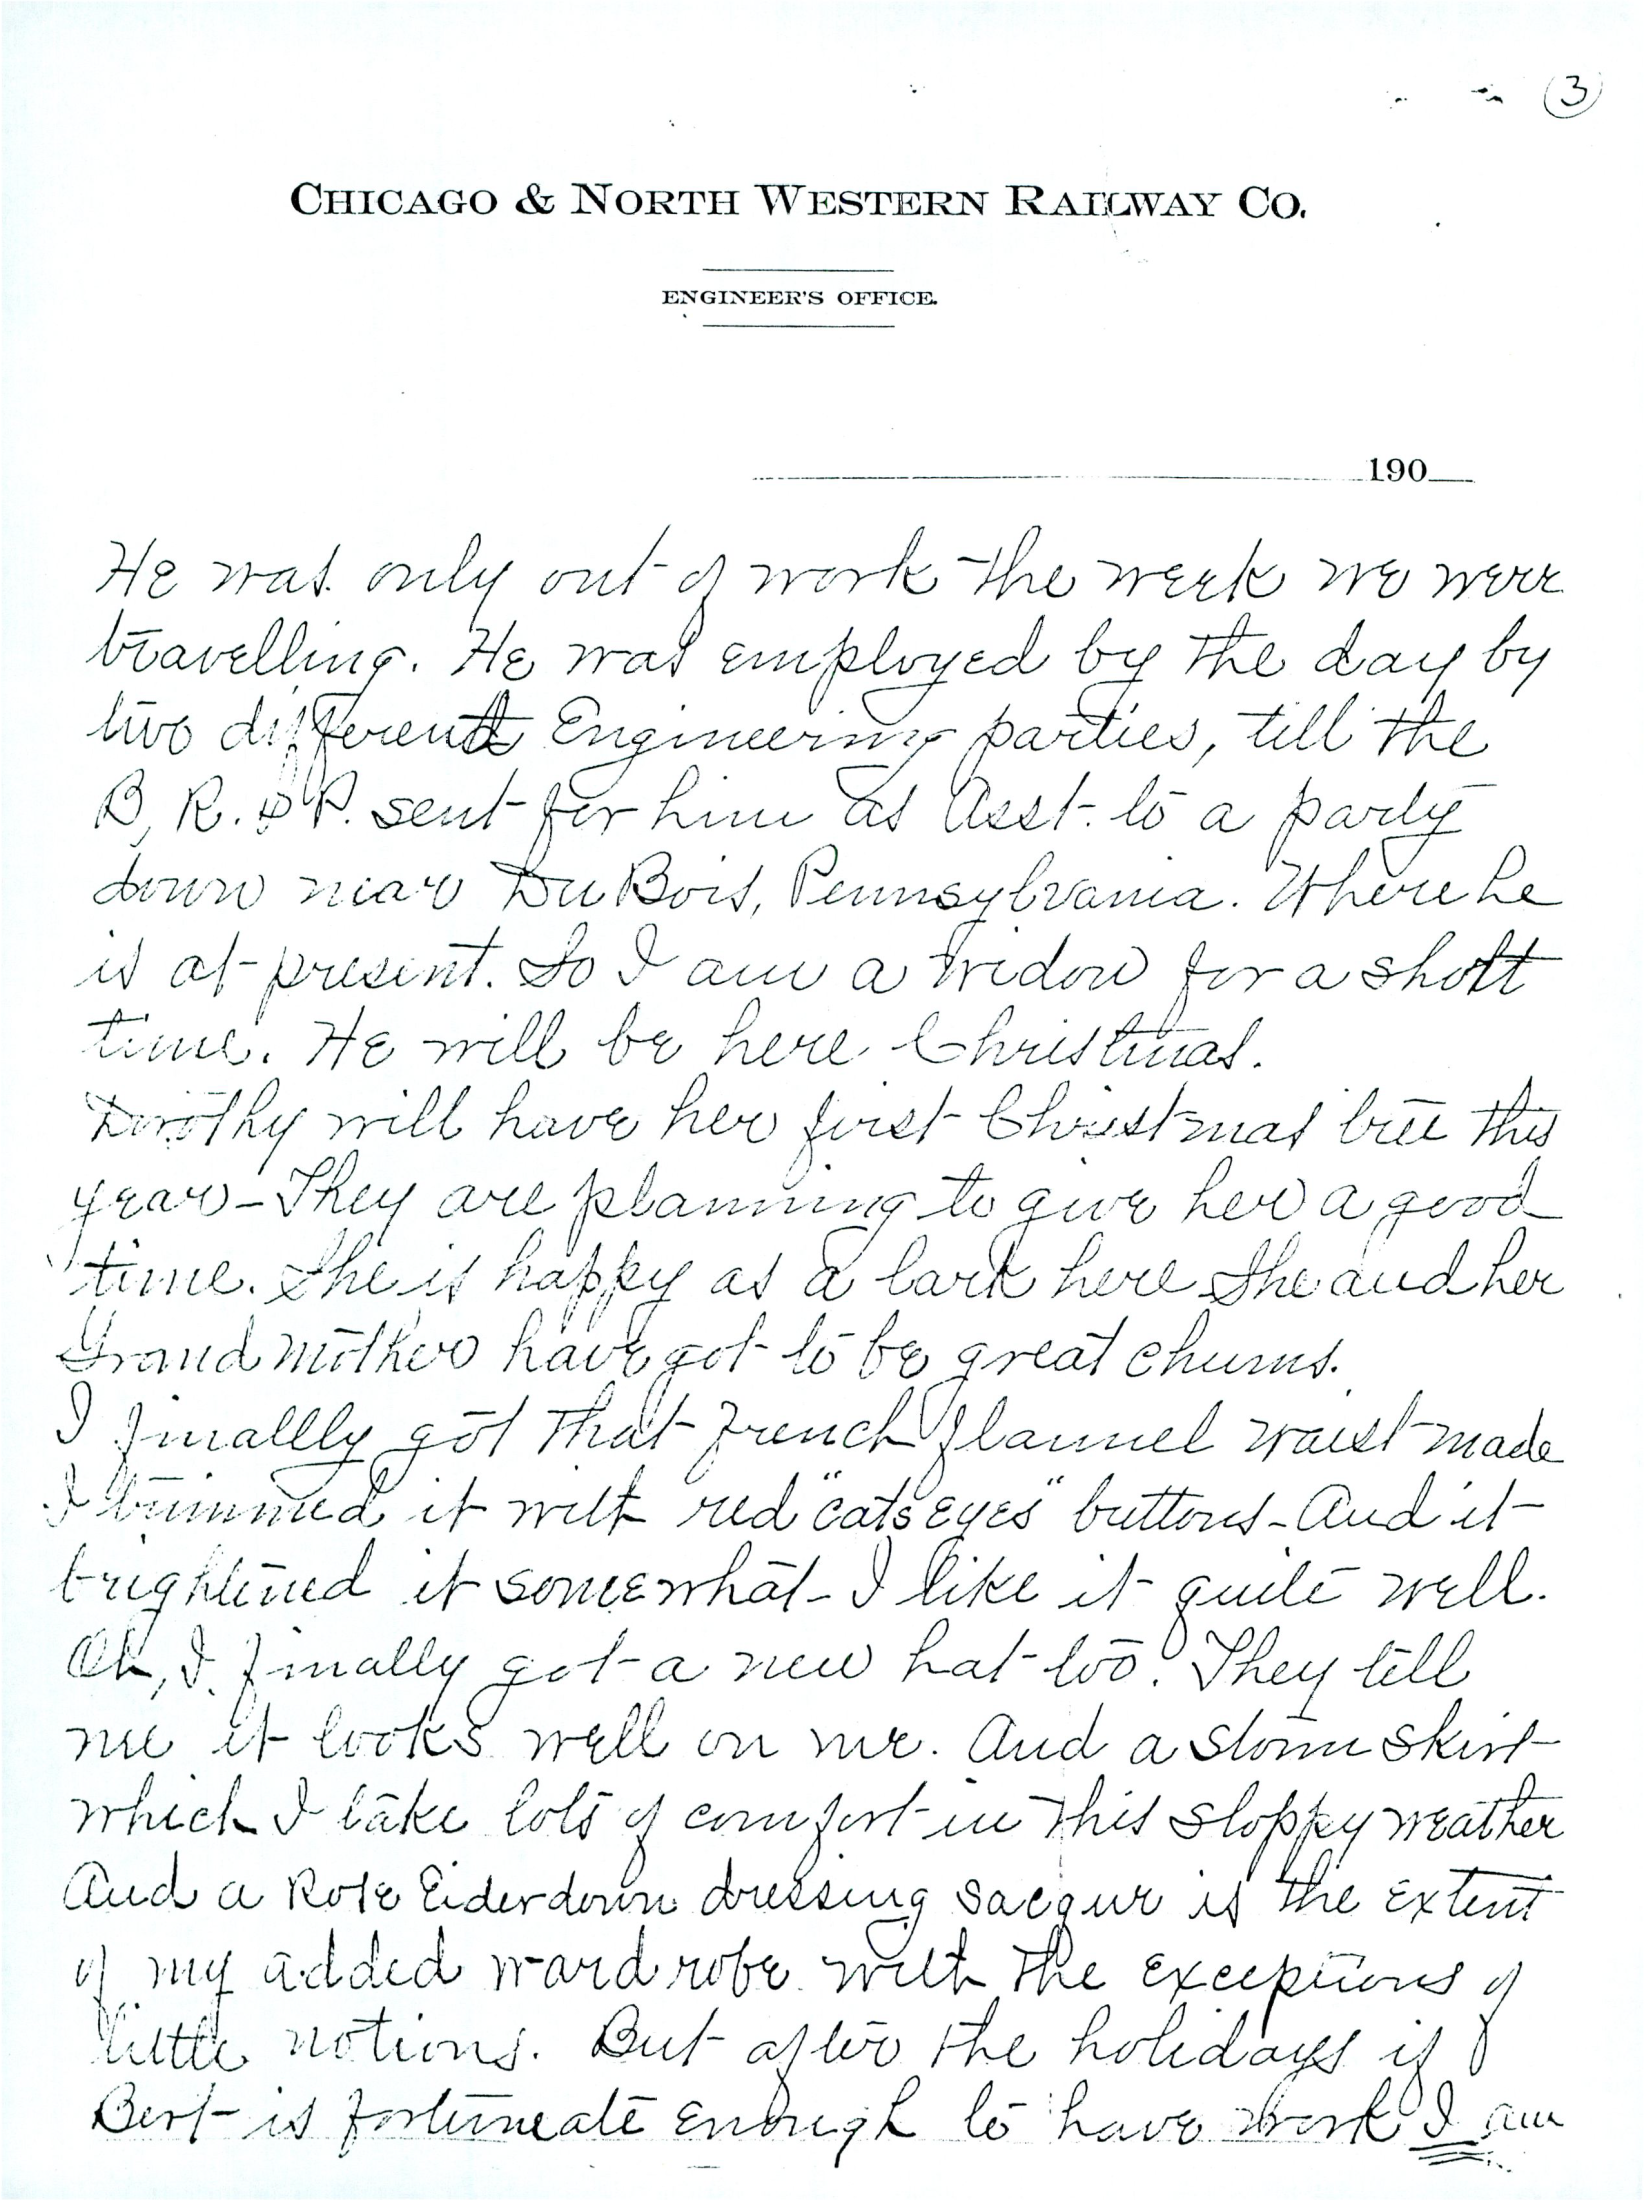 3
CHICAGO & NORTH WESTERN RAILWAY CO.
ENGINEER'S OFFICE.
190
He was only out of work the week we were
travelling. He was employed by the day by
two different Engineering parties, till the
B, R. & P. sent for him as Asst. to a party
down near DuBois, Pennsylvania. Where he
is at present. So I am a widow for a short
time. He will be here Christmas.
Dorothy will have her first Christmas tree this
year - They are planning to give her a good
time. She is happy as a lark here She and her
Grandmother have got to be great chums.
I finallly got that French flannel waist made
I trimmed it with red "cats eyes" buttons - And it
brightened it somewhat - I like it quite well.
Oh, I finally got a new hat too. They tell
me it looks well on me. And a storm skirt
which I take lots of comfort in this sloppy weather
And a Rose Eiderdown dressing sacque is the extent
of my added wardrobe with the exceptions of
little notions. But after the holidays if
Bert is fortuneate enough to have work I am